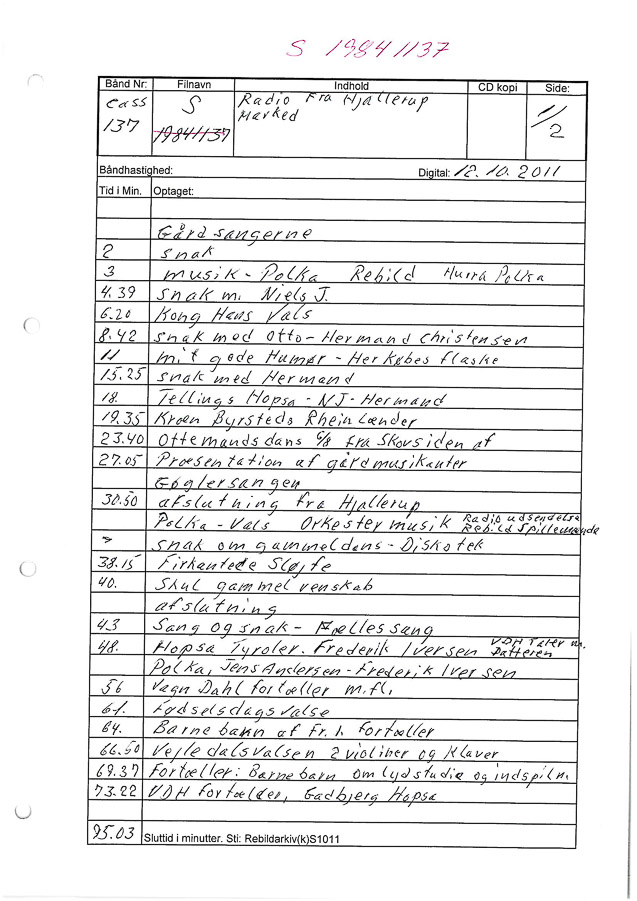 S 1984/137
Bånd Nr: Filnavn Indhold CD kopi Side:
Cass 137 S 1984/137 Radio Fra Hjallerup Marked 1/2
Båndhastighed: Digital: 12.10.2011
Tid i Min. Optaget:
Gårdsangerne
2 snak
3 musik - Polka Rebild Hurra Polka
4.39 snak m. Niels J.
6.20 Kong Hans Vals
8.42 snak med Otto - Hermand Christensen
11 mit gode Humør - Her købes flaske
15.25 snak med Hermand
18. Tellings Hopsa - NJ - Hermand
19.35 Kræn Byrsteds Rheinlænder
23.40 Ottemandsdans 6/8 fra Skovsiden af
27.05 Præsentation af gårdmusikanter
Gøglersangen
30.50 afslutning fra Hjallerup
Polka - Vals Orkestermusik Radio udsendelse Rebild Spillemænde
snak om gammeldans - Diskotek
38.15 Firkantede Sløjfe
40. Skul gammel venskab
afslutning
43 Sang og snak - Fællessang
48. Hopsa Tyroler. Frederik Iversen VDH Taler m. Datteren
Polka, Jens Andersen - Frederik Iversen
56 Vagn Dahl fortæller m.fl.
61. Fødselsdagsvalse
64. Barnebarn af Fr. I. Fortæller
66.50 Vejledalsvalsen 2 violiner og Klaver
69.37 Fortæller: Barnebarn om lydstudie og indspiln.
73.22 VDH Fortælder, Gadbjerg Hopsa
95.03 Sluttid i minutter. Sti: Rebildarkiv(k)S1011